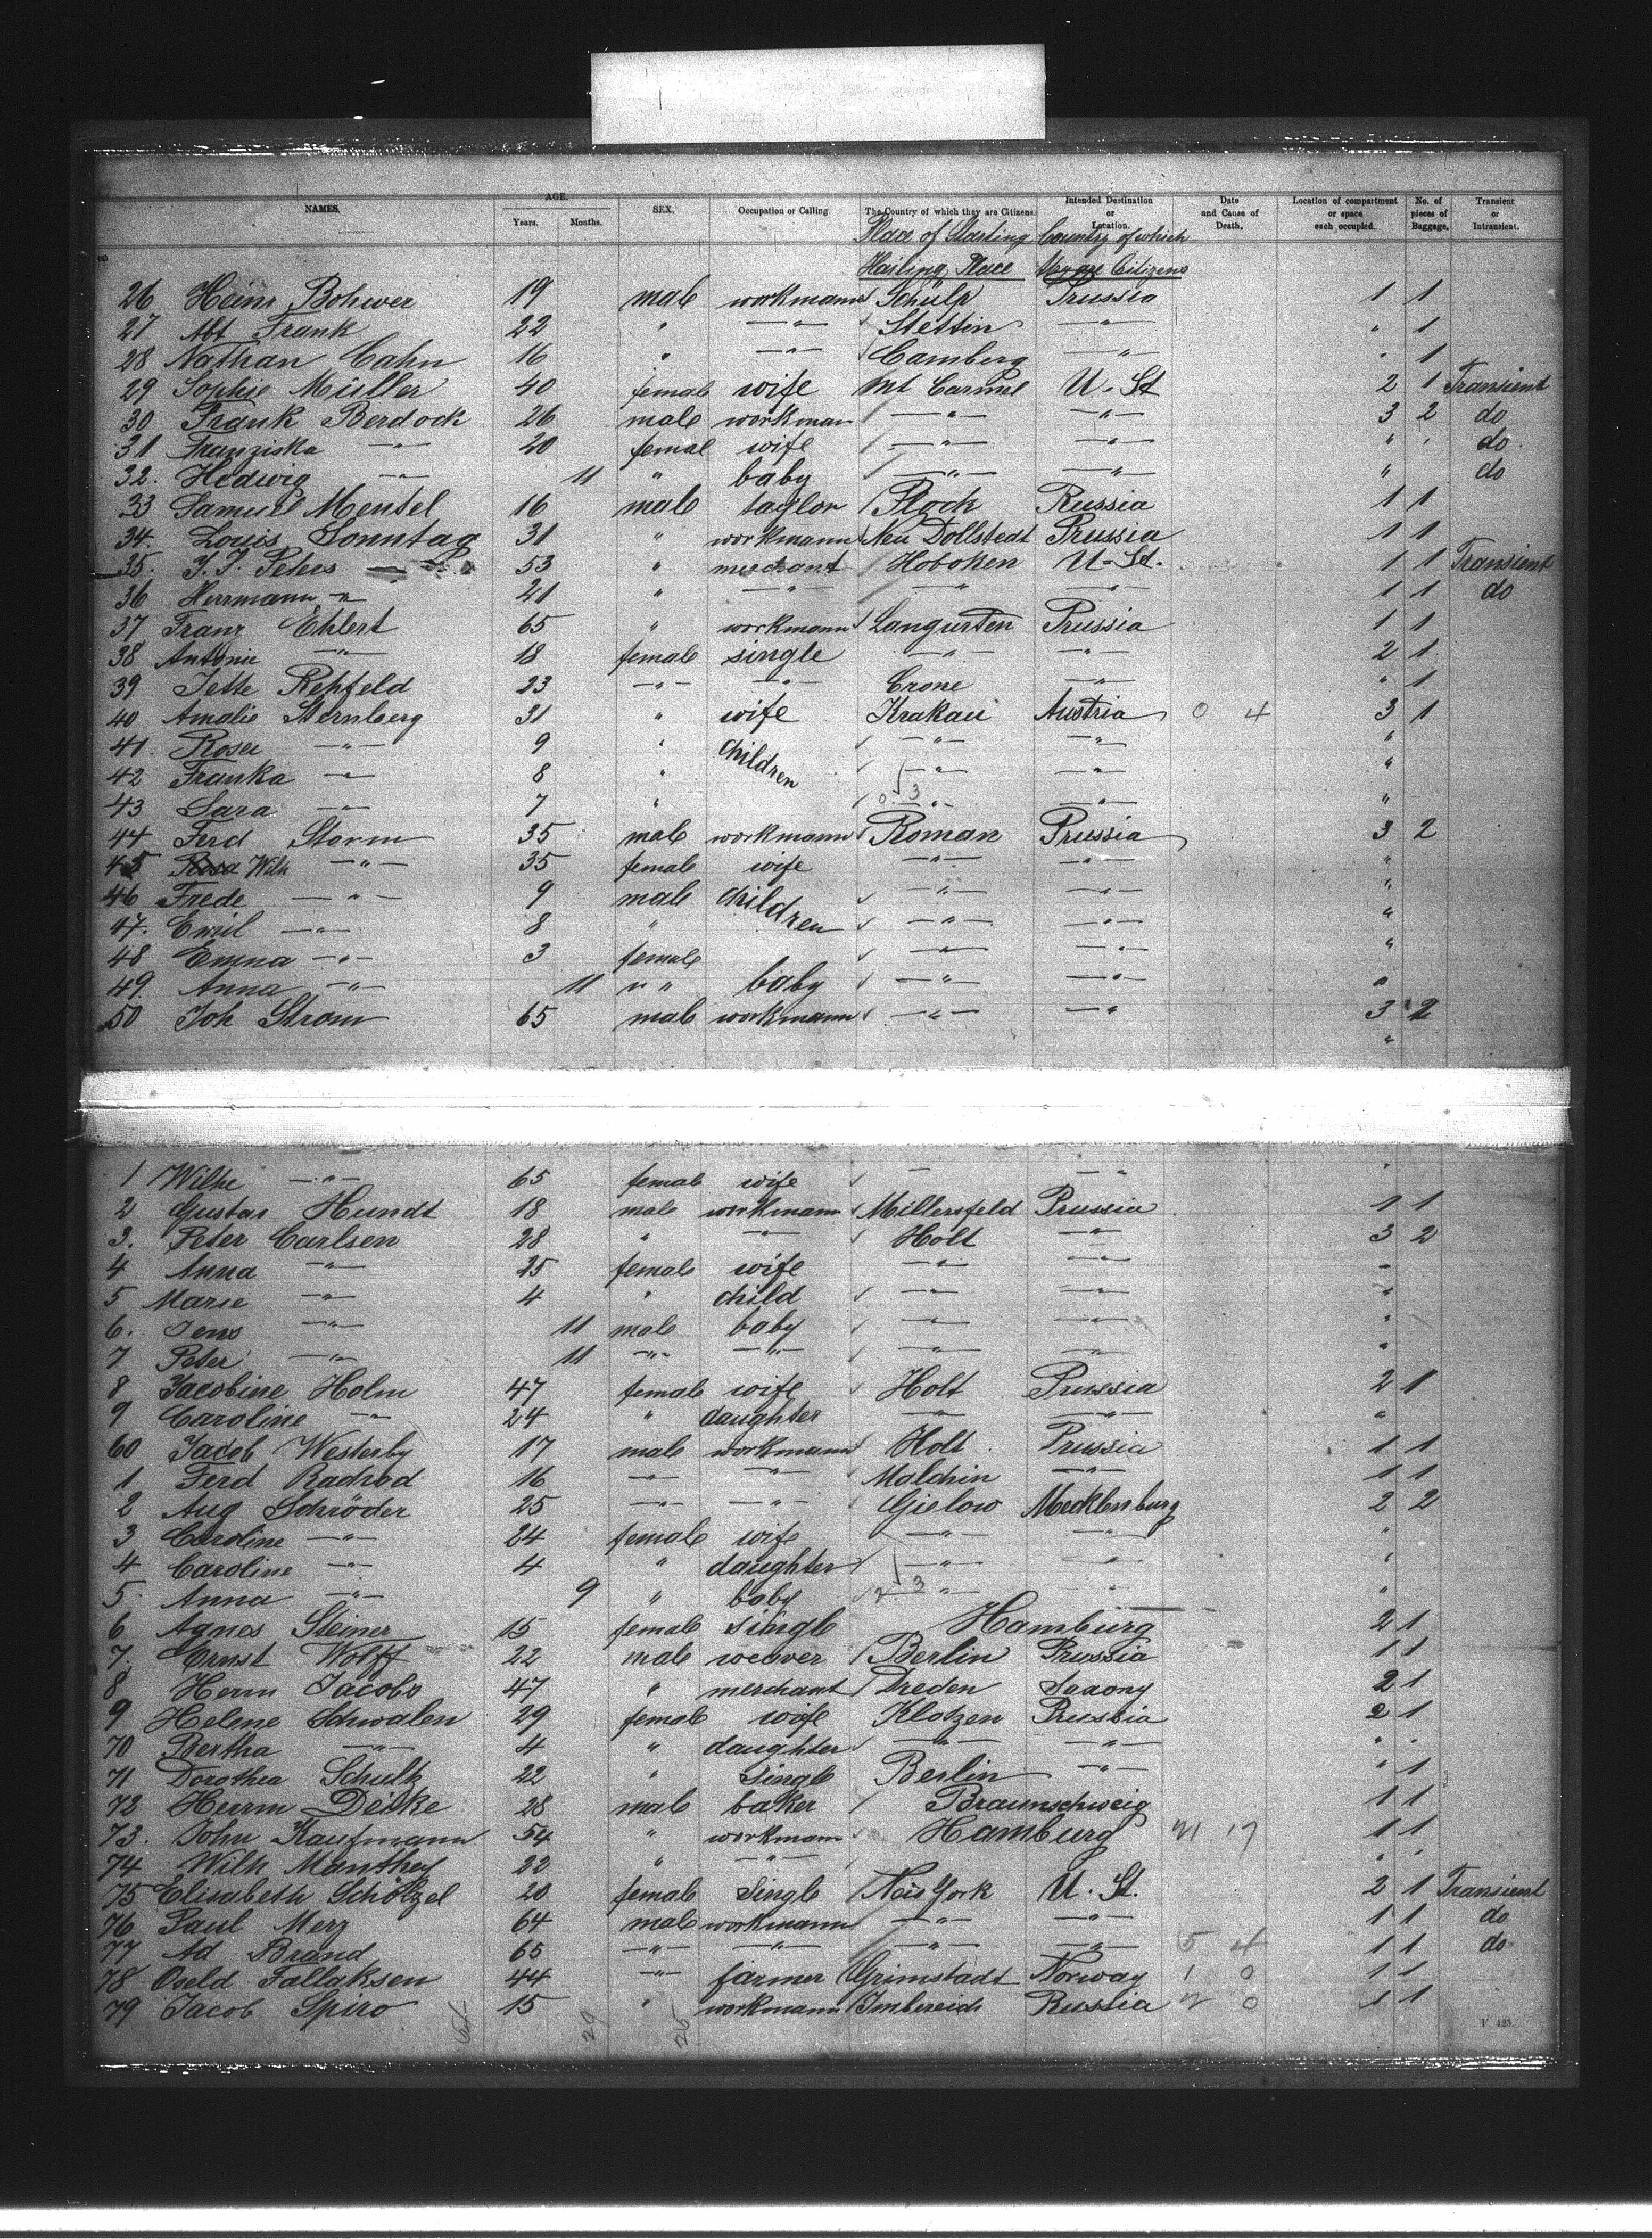 NAMES. AGE. Years. Months. SEX. Occupation or Calling The Country of which they are Citizens. Intended Destination or Location. Date and Cause of Death. Location of compartment or space each occupied. No. of pieces of Baggage. Transient or Intransient.
Place of Starting Country of which
Hailing Place they are Citizens
26 Heinr Bohwer 19 male workmann Schülp Prussia 1 1
27 Abt Frank 22 " —"— Stettin —"— " 1
28 Nathan Cahn 16 " —"— Camberg —"— " 1
29 Sophie Müller 40 female wife Mt Carmel U. St 2 1 Transient
30 Frank Berdock 26 male workman —"— —"— 3 2 do
31 Franziska —"— 20 femal wife —"— —"— " " do.
32. Hedwig —"— 11 " baby —"— —"— " do
33 Samuel Mentel 16 male taylor Plock Russia 1 1
34. Louis Sonntag 31 " workmann Neu Dollstedt Prussia 1 1
35. J. J. Peters 53 " merchant Hoboken U-St. 1 1 Transient
36 Herrmann —"— 21 " —"— —"— —"— 1 1 do
37 Franz Ehlert 65 " workmann Langurten Prussia 1 1
38 Antonie —"— 18 female single —"— —"— 2 1
39 Jette Rehfeld 23 —"— —"— Crone —"— " 1
40 Amalie Sternberg 31 " wife Krakau Austria 0 4 3 1
41. Rosa —"— 9 " children —"— —"— "
42 Franka —"— 8 " —"— —"— "
43 Sara —"— 7 " 0 3 —"— —"— "
44 Ferd Storm 35 male workmann Roman Prussia 3 2
45 Rosa Wilh —"— 35 female wife —"— —"— "
46 Frede —"— 9 male children —"— —"— "
47. Emil —"— 8 " —"— —"— "
48 Emma —"— 3 female —"— —"— "
49. Anna —"— 11 " " baby —"— —"— "
50 Joh Strom 65 male workmann —"— —"— 3 2
"
1 Wilhe —"— 65 female wife — —"— "
2 Gustav Hundt 18 male workmann Millersfeld Prussia 1 1
3. Peter Carlsen 28 " —"— Holt —"— 3 2
4 Anna —"— 25 female wife —"— —"— "
5 Marie —"— 4 " child —"— —"— "
6. Jens —"— 11 male baby —"— —"— "
7 Peter —"— 11 —"— —"— —"— —"— "
8 Jacobine Holm 47 female wife Holt Prussia 2 1
9 Caroline —"— 24 " daughter —"— —"— "
60 Jacob Westerby 17 male workmann Holt Prussia 1 1
1 Ferd Radrod 16 —"— —"— Malchin —"— 1 1
2 Aug Schröder 25 —"— —"— Gielow Mecklenburg 2 2
3 Caroline —"— 24 female wife —"— —"— "
4 Caroline —"— 4 " daughter —"— —"— "
5 Anna —"— 9 " baby 2 3 —"— " "
6 Agnes Steiner 15 female single Hamburg 2 1
7. Ernst Wolff 22 male weaver Berlin Prussia 1 1
8 Herm Jacobs 47 " merchant Dreden Saxony 2 1
9 Helene Schwalen 29 female wife Klotzen Prussia 2 1
70 Bertha —"— 4 " daughter —"— —"— " "
71 Dorothea Schultz 22 " single Berlin —"— " 1
72 Herrm Deike 28 male baker Braunschweig 1 1
73. John Kaufmann 54 " workmann Hamburg 21 17 1 1
74 Wilh Manthey 22 " —"— " "
75 Elisabeth Schölzel 20 female single Neis York U. St. 2 1 Transient
76 Paul Merz 64 male workmann —"— —"— 1 1 do
77 Ad Brand 65 —"— —"— —"— —"— 5 4 1 1 do
78 Oveld Fallaksen 44 —"— farmer Grimstadt Norway 1 0 1 1
79 Jacob Spiro 15 " workmann Imbereid Russia 2 0 1 1
29 25
F. 425.